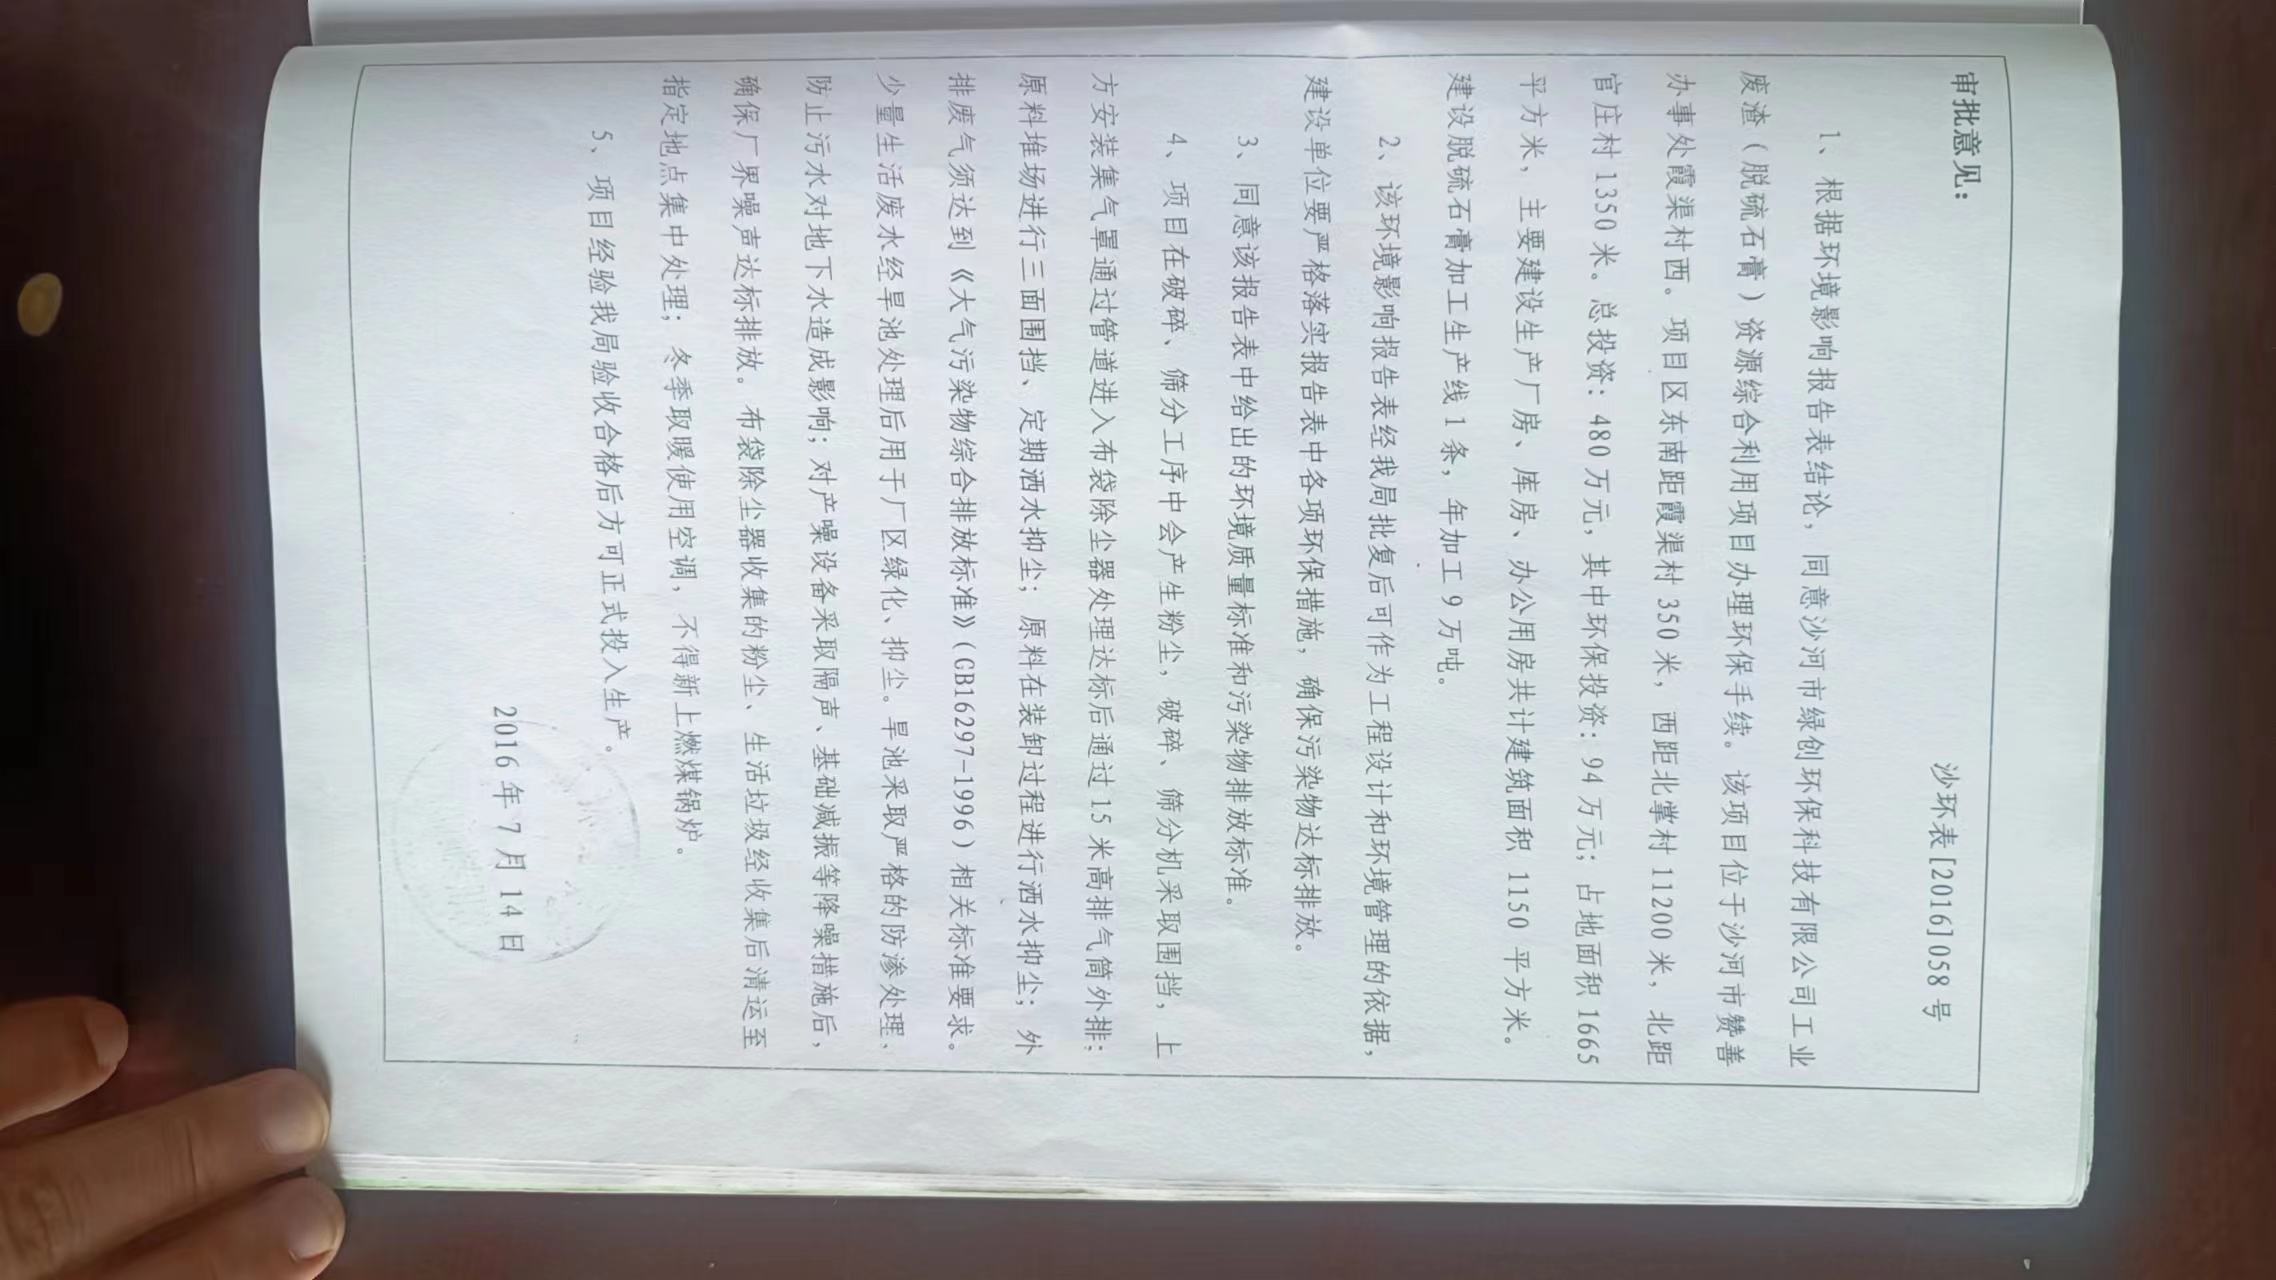 审批意见：
沙环表[2016]058号
1、根据环境影响报告表结论，同意沙河市绿创环保科技有限公司工业
废渣（脱硫石膏）资源综合利用项目办理环保手续。该项目位于沙河市赞善
办事处霞渠村西。项目区东南距霞渠村350米，西距北掌村11200米，北距
官庄村1350米。总投资：480万元，其中环保投资：94万元；占地面积1665
平方米，主要建设生产厂房、库房、办公用房共计建筑面积1150平方米。
建设脱硫石膏加工生产线1条，年加工9万吨。
2、该环境影响报告表经我局批复后可作为工程设计和环境管理的依据，
建设单位要严格落实报告表中各项环保措施，确保污染物达标排放。
3、同意该报告表中给出的环境质量标准和污染物排放标准。
4、项目在破碎、筛分工序中会产生粉尘，破碎、筛分机采取围挡，上
方安装集气罩通过管道进入布袋除尘器处理达标后通过15米高排气筒外排；
原料堆场进行三面围挡、定期洒水抑尘；原料在装卸过程进行洒水抑尘；外
排废气须达到《大气污染物综合排放标准》（GB16297-1996）相关标准要求。
少量生活废水经旱池处理后用于厂区绿化、抑尘。旱池采取严格的防渗处理，
防止污水对地下水造成影响；对产噪设备采取隔声、基础减振等降噪措施后，
确保厂界噪声达标排放。布袋除尘器收集的粉尘、生活垃圾经收集后清运至
指定地点集中处理；冬季取暖使用空调，不得新上燃煤锅炉。
5、项目经验我局验收合格后方可正式投入生产。
2016年7月14日